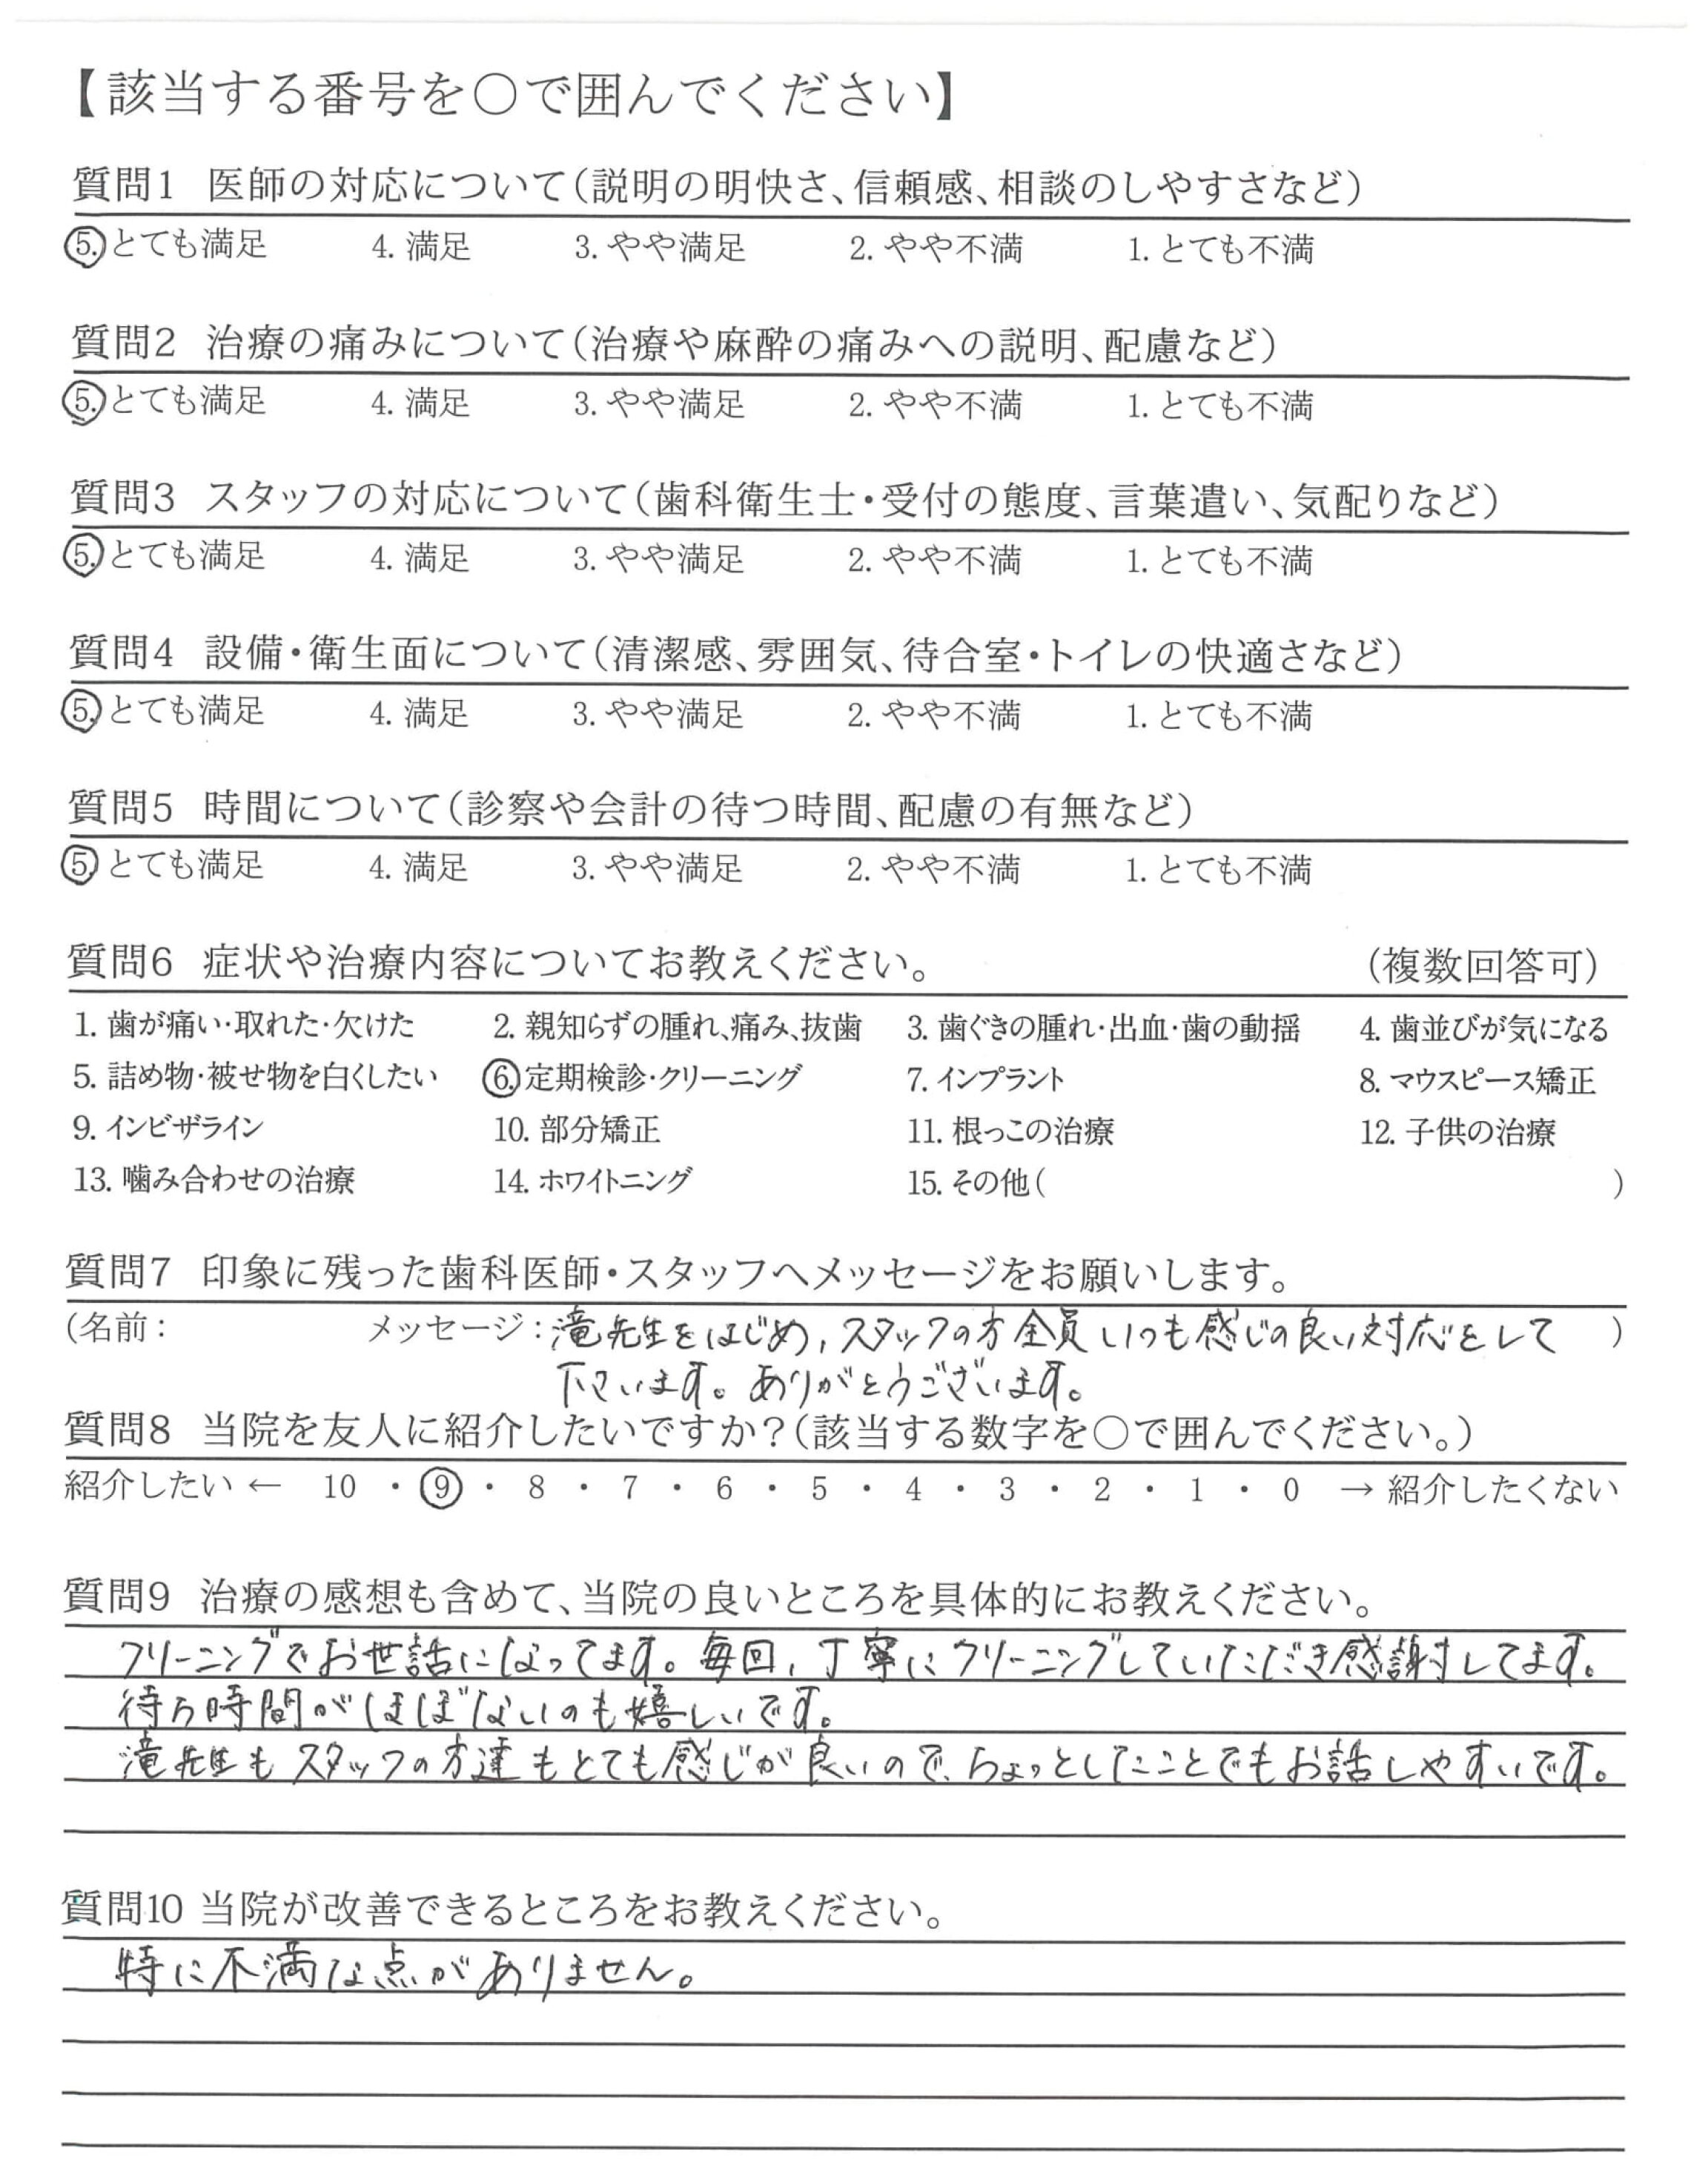 【該当する番号を〇で囲んでください】
質問1 医師の対応について(説明の明快さ、信頼感、相談のしやすさなど)
5. とても満足 4. 満足 3. やや満足 2. やや不満 1. とても不満
質問2 治療の痛みについて(治療や麻酔の痛みへの説明、配慮など)
5. とても満足 4. 満足 3. やや満足 2. やや不満 1. とても不満
質問3 スタッフの対応について(歯科衛生士・受付の態度、言葉遣い、気配りなど)
5. とても満足 4. 満足 3. やや満足 2. やや不満 1. とても不満
質問4 設備・衛生面について(清潔感、雰囲気、待合室・トイレの快適さなど)
5. とても満足 4. 満足 3. やや満足 2. やや不満 1. とても不満
質問5 時間について(診察や会計の待つ時間、配慮の有無など)
5. とても満足 4. 満足 3. やや満足 2. やや不満 1. とても不満
質問6 症状や治療内容についてお教えください。 (複数回答可)
1. 歯が痛い・取れた・欠けた 2. 親知らずの腫れ、痛み、抜歯 3. 歯ぐきの腫れ・出血・歯の動揺 4. 歯並びが気になる
5. 詰め物・被せ物を白くしたい 6. 定期検診・クリーニング 7. インプラント 8. マウスピース矯正
9. インビザライン 10. 部分矯正 11. 根っこの治療 12. 子供の治療
13. 噛み合わせの治療 14. ホワイトニング 15. その他( )
質問7 印象に残った歯科医師・スタッフへメッセージをお願いします。
(名前: メッセージ:滝先生をはじめ,スタッフの方全員いつも感じの良い対応をして )
下さいます。ありがとうございます。
質問8 当院を友人に紹介したいですか?(該当する数字を〇で囲んでください。)
紹介したい ← 10 ・ 9 ・ 8 ・ 7 ・ 6 ・ 5 ・ 4 ・ 3 ・ 2 ・ 1 ・ 0 → 紹介したくない
質問9 治療の感想も含めて、当院の良いところを具体的にお教えください。
クリーニングでお世話になってます。毎回,丁寧にクリーニングしていただき感謝してます。
待ち時間がほぼないのも嬉しいです。
滝先生もスタッフの方達もとても感じが良いので、ちょっとしたことでもお話しやすいです。
質問10 当院が改善できるところをお教えください。
特に不満な点がありません。